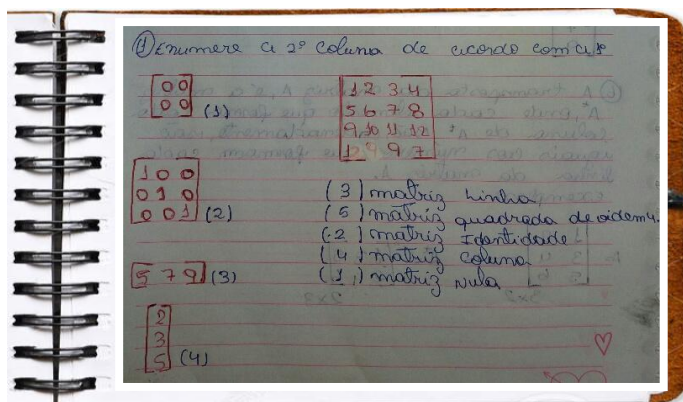 ① Enumere a 2ª coluna de acordo com a 1ª
0 0
0 0 (1)
1 2 3 4
5 6 7 8
9 10 11 12
9 9 7
1 0 0
0 1 0
0 0 1 (2)
(3) matriz Linha
(5) matriz quadrada de ordem 4.
(2) matriz Identidade
(4) matriz coluna
(1) matriz Nula
5 7 9 (3)
2
3
5 (4)